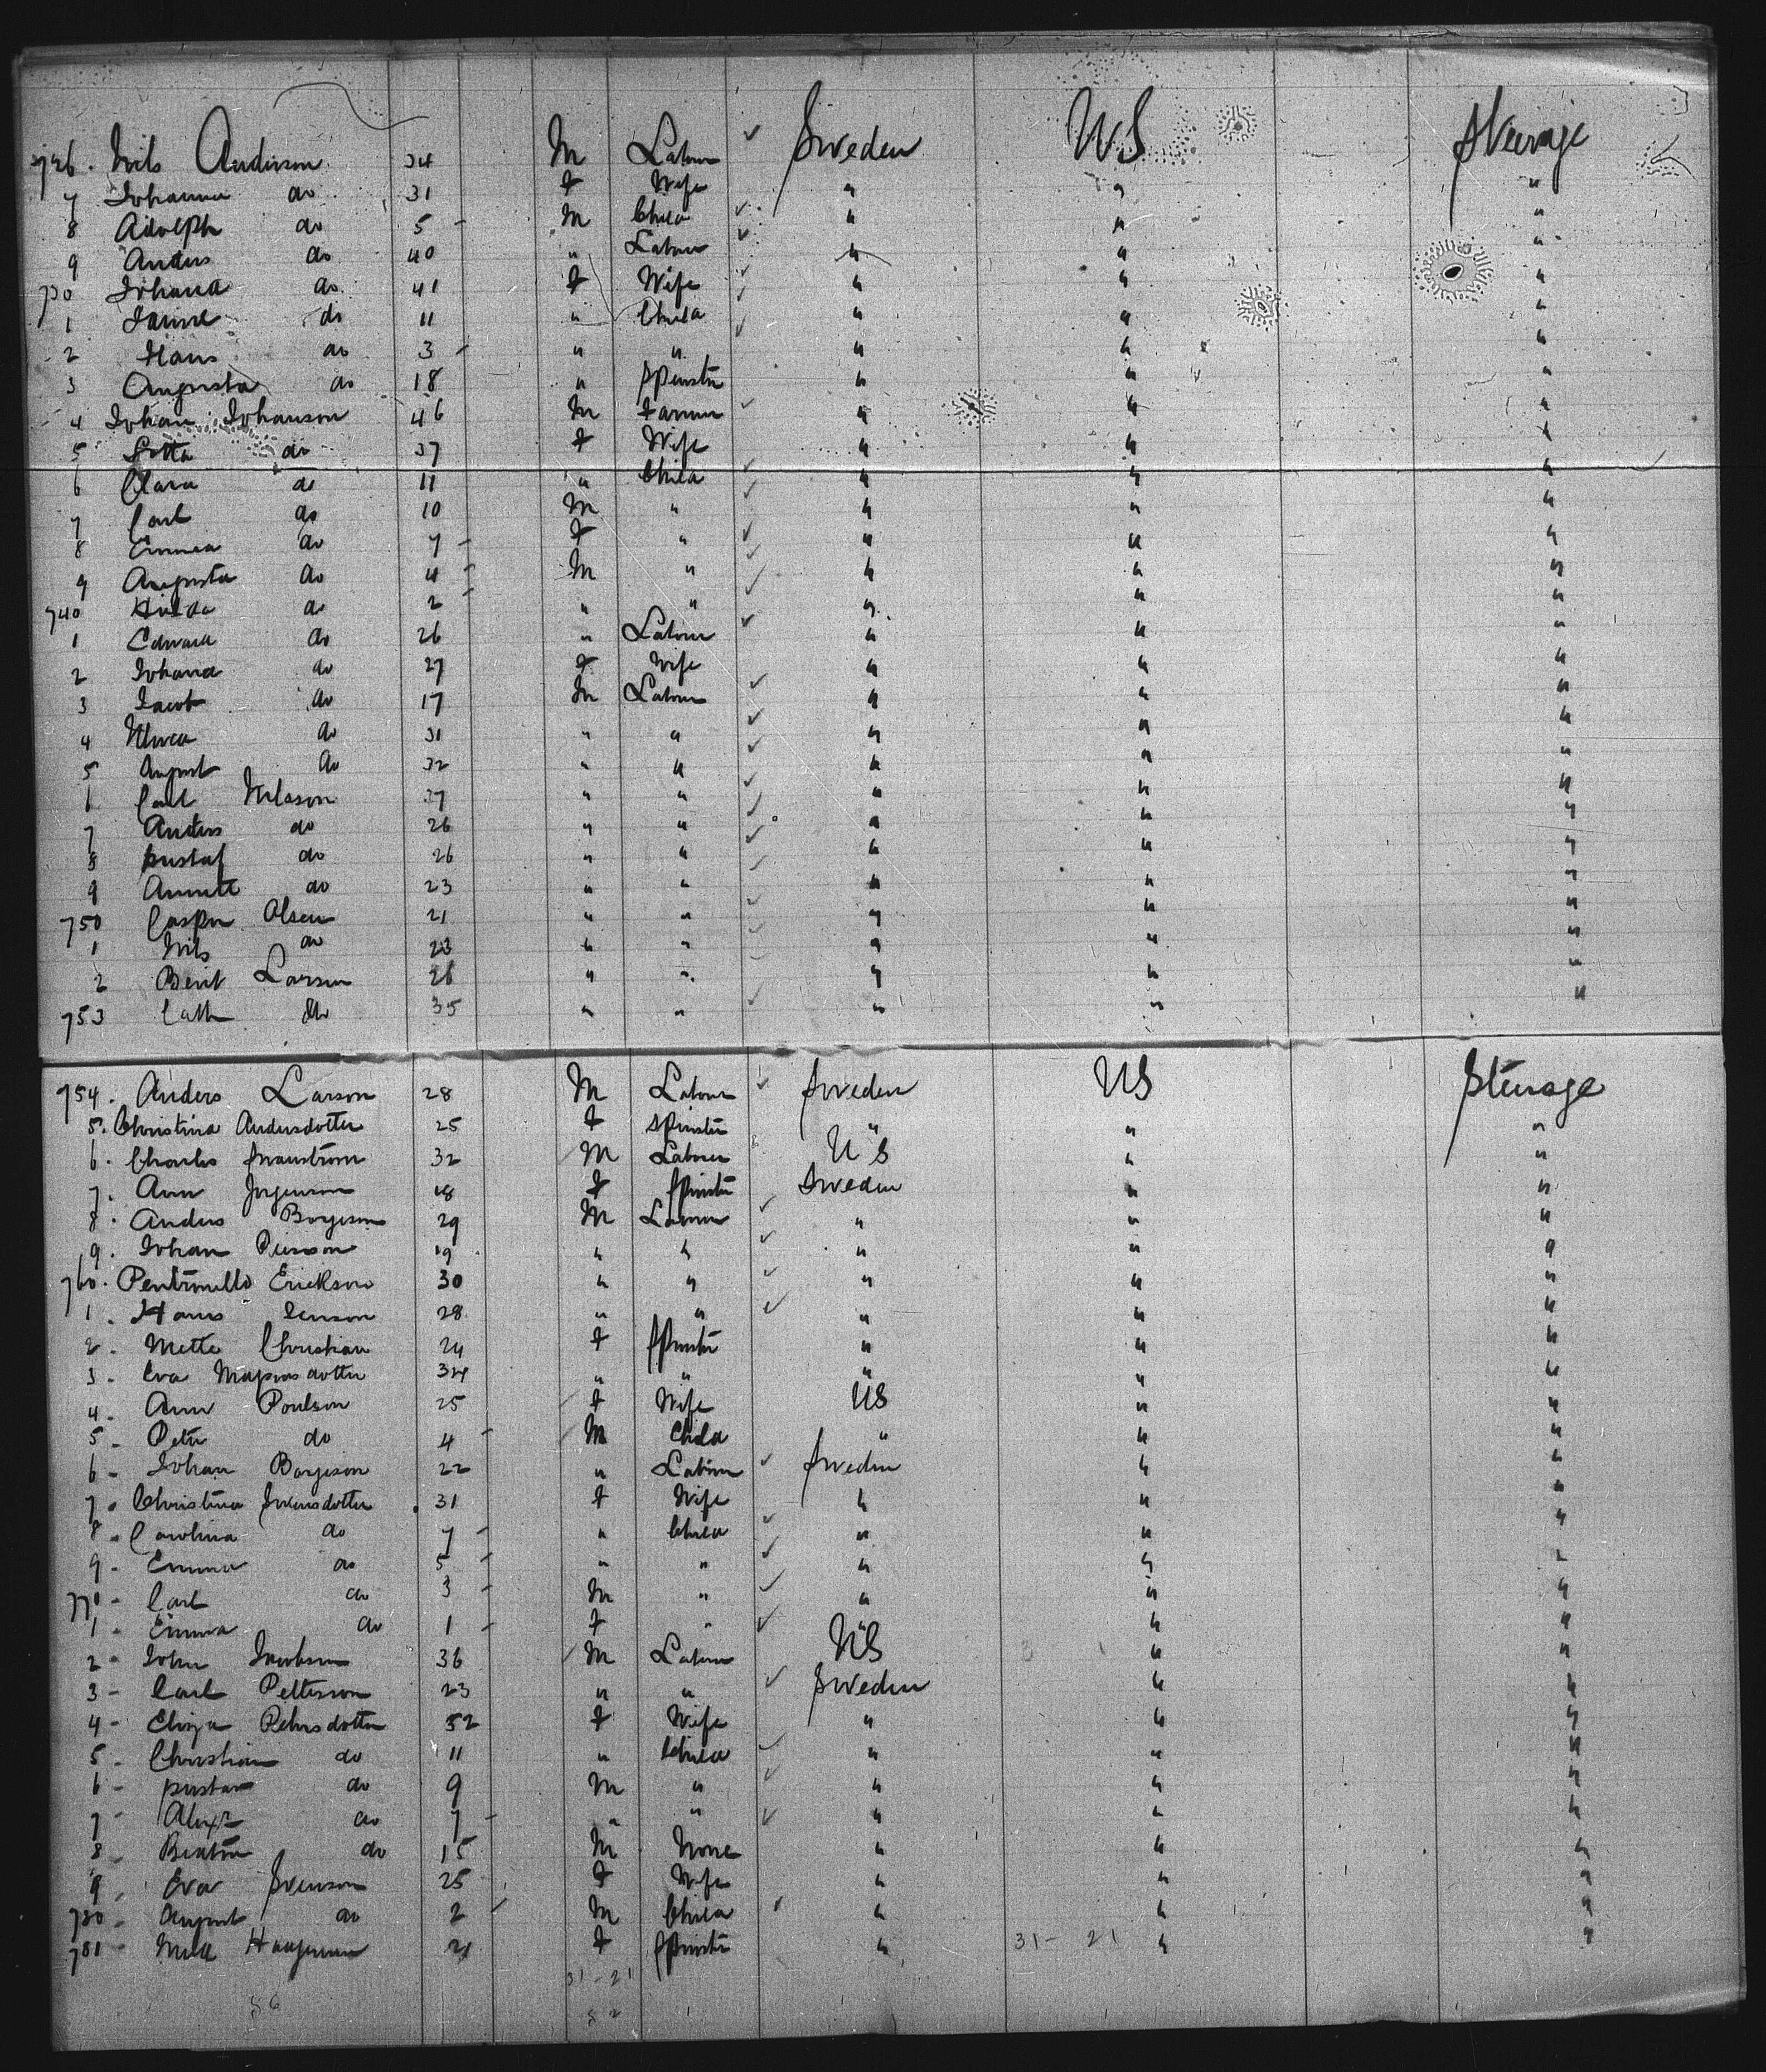 726. Nils Anderson 34 M Labour Sweden US Steerage
7 Johanna do 31 F Wife " " "
8 Adolph do 5 - M Child " " "
9 Anders do 40 " Labour " " "
730 Johana do 41 F Wife " " "
1 do 11 " Child " " "
2 Hans do 3 - " " " " "
3 Augusta do 18 " Spinster " " "
4 Johan Johanson 46 M Farmer " " "
5 Lotta do 37 F Wife " " "
6 Clara do 11 " Child " " "
7 Carl do 10 M " " " "
8 Emma do 7 - F " " " "
9 Augusta do 4 - M " " " "
740 Hulda do 2 - " " " " "
1 Edward do 26 " Labour " " "
2 Johana do 27 F Wife " " "
3 Jacob do 17 M Labour " " "
4 do 31 " " " " "
5 August do 32 " " " " "
6 Carl Nilsson 37 " " " " "
7 Anders do 26 " " " " "
8 Gustaf do 26 " " " " "
9 do 23 " " " " "
750 Casper Olsen 21 " " " " "
1 Nils do 23 " " " " "
2 Berit Larsen 26 " " " " "
753 Cath do 35 " " " " "
754. Anders Larson 28 M Labour Sweden US Steerage
5. Christina Andersdotter 25 F Spinster " " "
6. Charles 32 M Labour US " "
7. Ann 18 F Spinster Sweden " "
8. Anders Borjeson 29 M Labour " " "
9. Johan Pierson 19 " " " " "
760. Erickson 30 " " " " "
1. Hans Jenson 28 " " " " "
2. Mette Christian 24 F Spinster " " "
3. Eva Magnusdotter 34 " " " " "
4. Ann Poulson 25 F Wife US " "
5. Peter do 4 - M Child " " "
6. Johan Borjeson 22 " Labour Sweden " "
7. Christina Svensdotter 31 F Wife " " "
8. Carolina do 7 - " Child " " "
9. Emma do 5 - " " " " "
770. Carl do 3 - M " " " "
1. Emma do 1 - F " " " "
2. John Jacobson 36 M Labour US " "
3. Carl Petterson 23 " " Sweden " "
4. Eliza Petersdotter 32 F Wife " " "
5. Christian do 11 " Child " " "
6. Gustav do 9 M " " " "
7. Alexr do 7 - " " " " "
8. do 15 M None " " "
9. Eva Svenson 25 F Wife " " "
780. August do 2 M Child " " "
781. 21 F Spinster " 31-21 " "
31-21
56 52